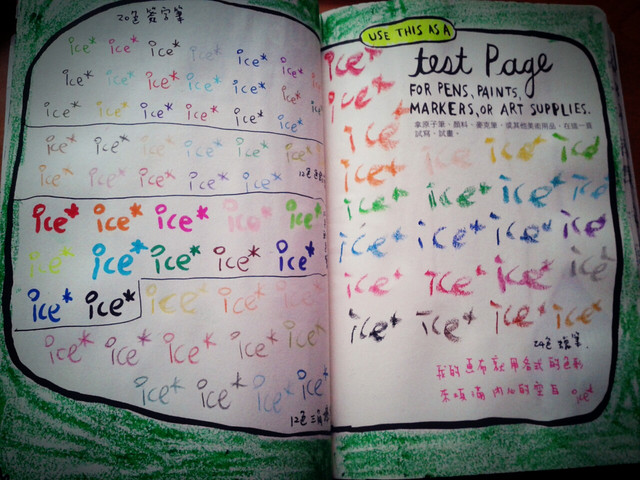 20色 簽字筆
ice* ice* ice* ice* ice* ice*
ice* ice* ice* ice* ice* ice*
ice* ice* ice* ice* ice* ice*
ice* ice* ice* ice* ice* ice*
ice* ice* ice* ice* ice*
12色
ice* ice* ice* ice* ice*
ice* ice* ice* ice* ice*
ice* ice* ice* ice* ice*
ice* ice* ice* ice* ice*
ice* ice* ice* ice*
12色 三角
USE THIS AS A
test Page
FOR PENS, PAINTS,
MARKERS, OR ART SUPPLIES.
拿原子筆、顏料、麥克筆,或其他美術用品,在這一頁
試寫、試畫。
ice*
ice*
ice*
ice* ice* ice* ice*
ice* ice* ice* ice*
ice* ice* ice* ice*
ice* ice* ice* ice*
ice* ice* ice* ice*
24色 蠟筆.
我的 就用各式的色彩
來填滿內心的空白 ice*